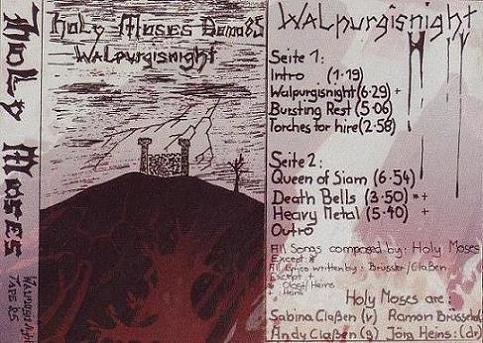 Holy Moses
Walpurgisnight
TAPE 85
Holy Moses Demo 85
Walpurgisnight
WALpurgisnight
Seite 1:
Intro (1·19)
Walpurgisnight (6·29) +
Bursting Rest (5·06)
Torches for hire (2·58)
Seite 2:
Queen of Siam (6·54)
Death Bells (3·50) *+
Heavy Metal (5·40) +
Outro
All Songs composed by: Holy Moses
Except: *
All Lyrics written by: Brüssler/Claßen
Except +
Heins
Holy Moses are:
Sabina Claßen (v) Ramon Brüssler
Andy Claßen (g) Jörg Heins: (dr)